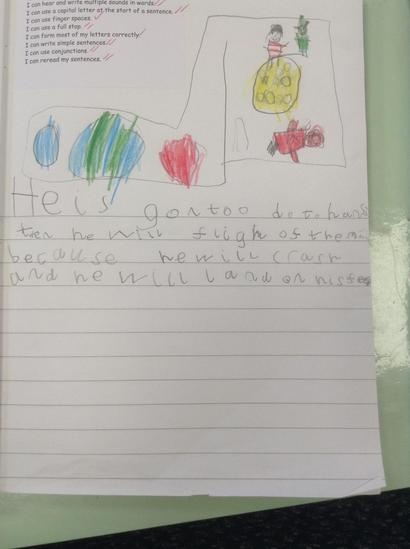 I can hear and write multiple sounds in words.
I can use a capital letter at the start of a sentence.
I can use finger spaces.
I can use a full stop.
I can form most of my letters correctly.
I can write simple sentences.
I can use conjunctions.
I can reread my sentences.
He is gon too do to
he will fligh of the
because he will crash
and he will land on his